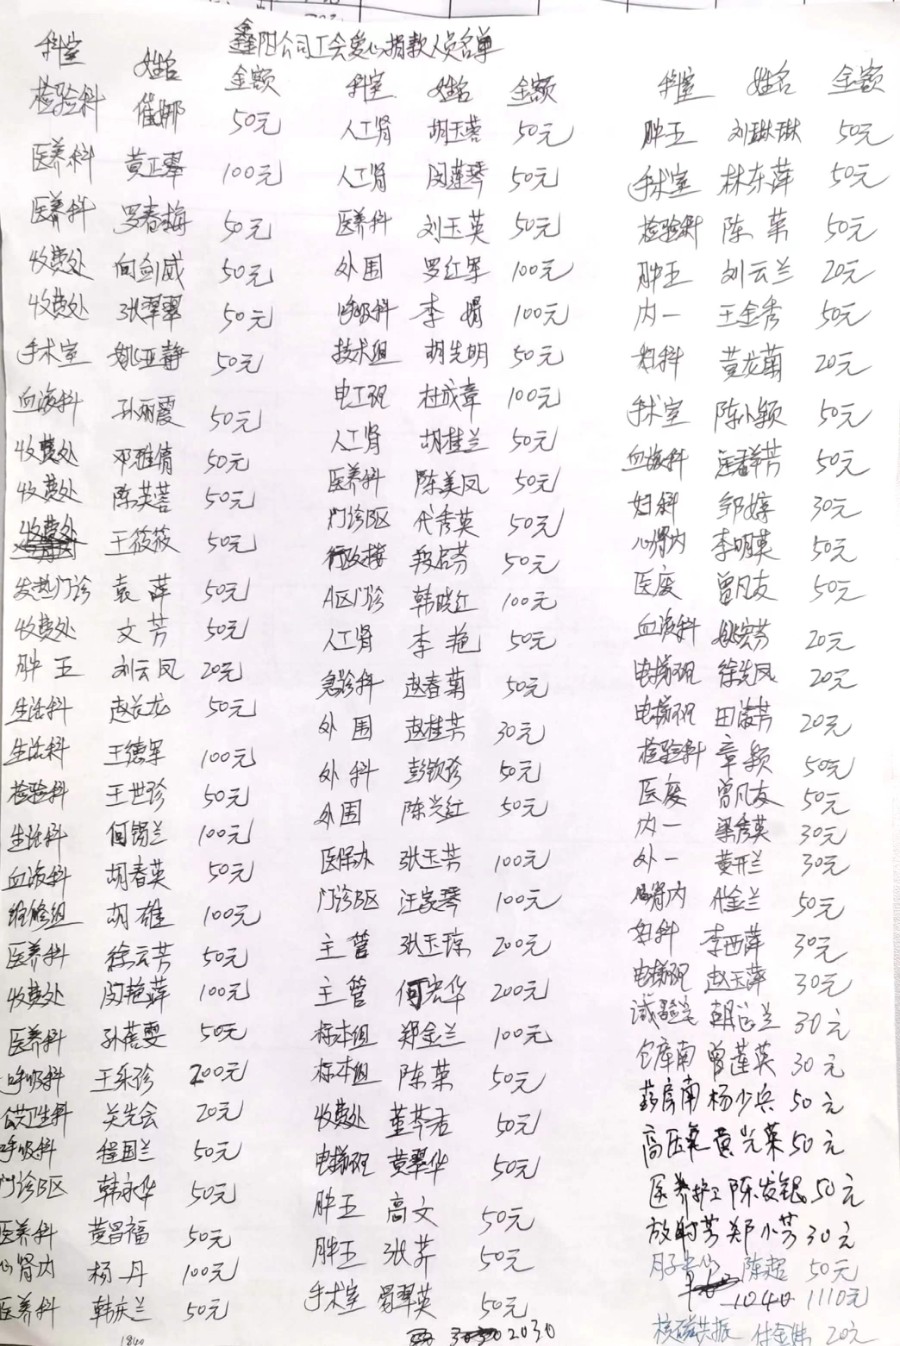 鑫阳公司工会爱心捐款人员名单
科室 姓名 金额
检验科 崔娜 50元
医养科 黄正翠 100元
医养科 罗春梅 50元
收费处 向剑威 50元
收费处 张翠翠 50元
手术室 姚亚静 50元
血液科 孙丽霞 50元
收费处 邓雅倩 50元
收费处 陈芙蓉 50元
收费处 王筱筱 50元
发热门诊 袁萍 50元
收费处 文芳 50元
肿五 刘云凤 20元
生活科 赵长龙 50元
生活科 王德军 100元
检验科 王世珍 50元
生活科 何锡兰 100元
血液科 胡春英 50元
维修组 胡雄 100元
医养科 徐云芳 50元
收费处 闵艳萍 100元
医养科 孙蓓雯 50元
呼吸科 王采珍 200元
公共卫生科 关先会 20元
呼吸科 程国兰 50元
门诊B区 韩永华 50元
医养科 黄昌福 50元
心肾内 杨丹 100元
医养科 韩庆兰 50元
1840
科室 姓名 金额
人工肾 胡玉蓉 50元
人工肾 闵莲琴 50元
医养科 刘玉英 50元
外围 罗红军 100元
呼吸科 李娟 100元
技术组 胡先明 50元
电工班 杜成章 100元
人工肾 胡桂兰 50元
医养科 陈美凤 50元
门诊B区 代秀英 50元
行政楼 段启芬 50元
A区门诊 韩晓红 100元
人工肾 李艳 50元
急诊科 赵春菊 50元
外围 赵桂芳 30元
外科 彭钦珍 50元
外围 陈兴红 50元
医保办 张玉芳 100元
门诊B区 汪家琴 100元
主管 张玉琼 200元
主管 何宏华 200元
标本组 郑金兰 100元
标本组 陈荣 50元
收费处 董芬君 50元
电梯班 黄翠华 50元
肿五 高文 50元
肿五 张莽 50元
手术室 易翠英 50元
2030
科室 姓名 金额
肿五 刘琳琳 50元
手术室 林东萍 50元
检验科 陈苇 50元
肿五 刘云兰 20元
内一 王金秀 50元
妇科 黄龙菊 20元
手术室 陈小颖 50元
血液科 芳 50元
妇科 邹婷 30元
心肾内 李明英 50元
医废 曾凡友 50元
血液科 姚芳 20元
电梯班 徐先凤 20元
电梯班 田淑芳 20元
检验科 章颖 50元
医废 曾凡友 50元
内一 梁秀英 30元
外一 黄开兰 30元
心肾内 付金兰 50元
妇科 李西萍 30元
电梯班 赵玉萍 30元
试验室 胡兰 30元
仓库南 曾莲英 30元
药房南 杨少兵 50元
高压氧 黄光荣 50元
医养护工 陈发银 50元
放射 郑小芳 30元
月子中心 陈超 50元
1040 1110元
核磁共振 付金伟 20元